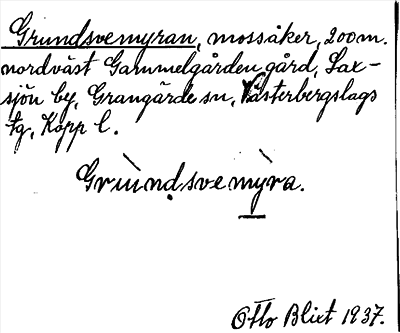 Grundsvemyran, mossåker, 200 m.
nordväst Gammelgården gård, Lax-
sjön by, Grangärde sn, Västerbergslags
tg, Kopp l.
Grùndsvemỳra.
Otto Blixt 1937.